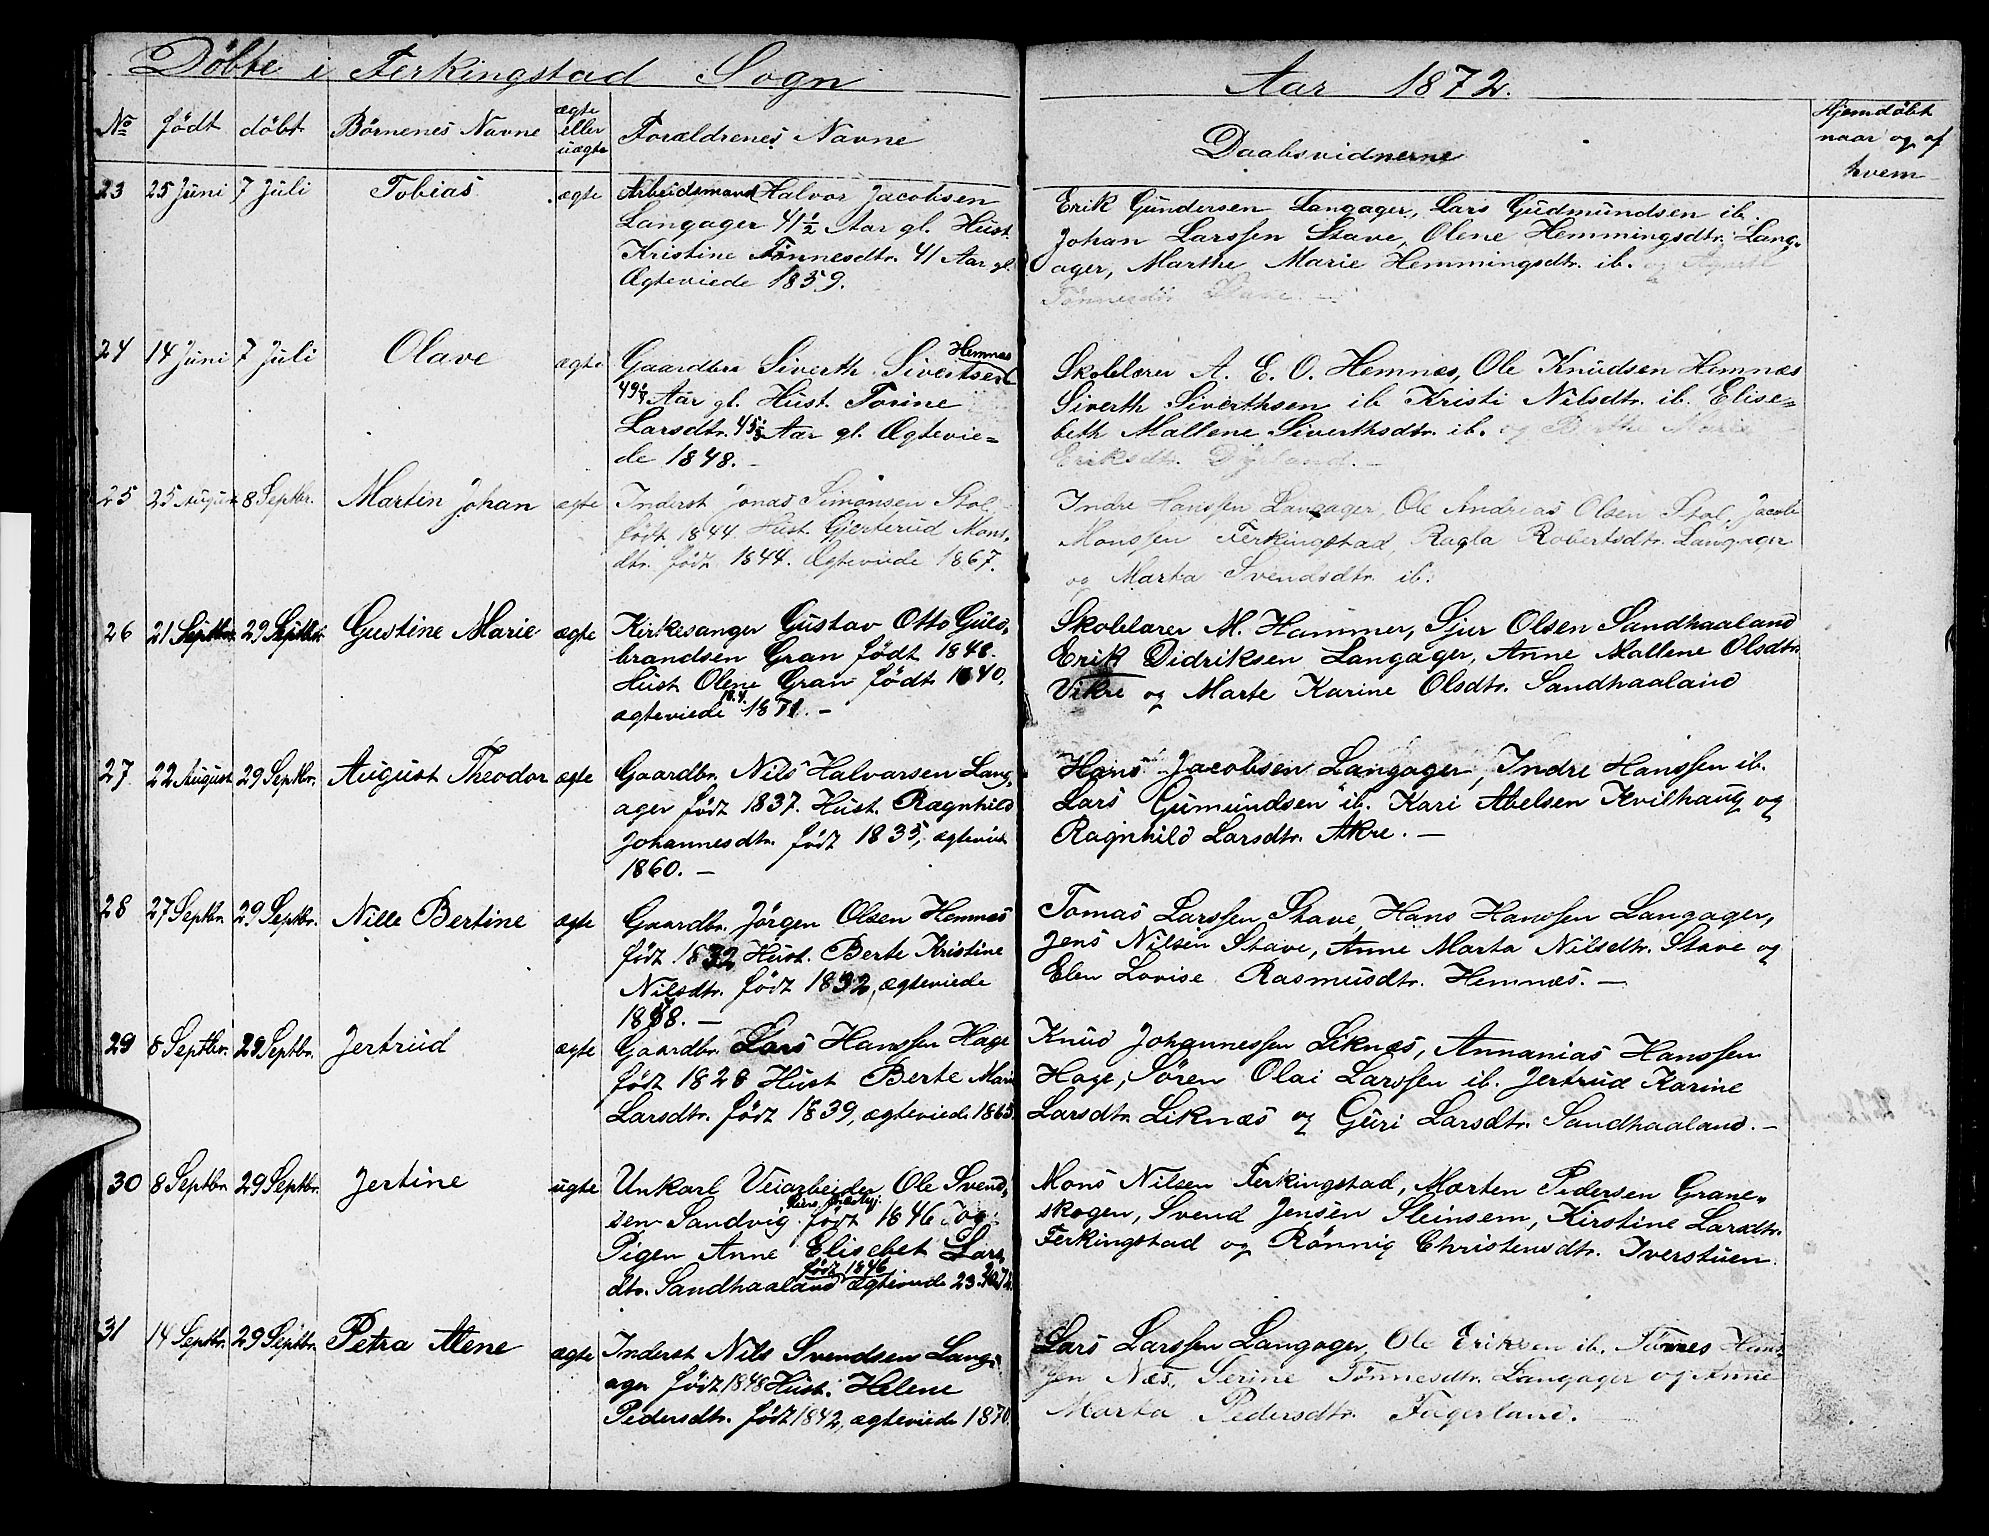 Døbte i Ferkingstad Sogn
Aar 1872.
No født døbt. Børnenes Navne ægte eller uægte Forældrenes Navne
Daabsvidnerne
Hjemdøbt naar og af hvem
23 25 Juni 7 Juli Tobias ægte Arbeidsmand Halvor Jacobsen
Langager 41 1/2 Aar gl. Hust.
Kristine Tönnesdtr. 41 Aar gl.
Ægteviede 1859.
Erik Gundersen Langager, Lars Gudmundsen ib.
Johan Larssen Stave, Olene Hemmingsdtr. Lang-
ager, Marthe Marie Hemmingsdtr. ib. og
Tönnesdtr. Stave.
24 14 Juni 7 Juli Olave ægte Gaardbr. Siverth Sivertsen Hemnæs
49 Aar gl. Hust. Torine
Larsdtr. 45 Aar gl. Ægtevie=
de 1848. -
Skolelærer A. E. O. Hemnæs, Ole Knudsen Hemnæs
Siverth Siverthsen ib Kristi Nilsdtr. ib. Elise=
beth Mallene Siverthsdtr. ib. og Berthe Marie
Eriksdtr. Dyrland. -
25 25 August 8 Septbr. Martin Johan ægte Inderst Jonas Simonsen Stol
født 1844. Hust. Gjerterud Mons-
dtr. født 1844. Ægteviede 1867.
Indre Hanssen Langager, Ole Andreas Olsen Stol, Jacob
Monssen Ferkingstad, Ragla Robertsdtr. Langager
og Marta Svendsdtr. ib.
26 21 Septbr. 29 Septbr. Gustine Marie ægte Kirkesanger Gustav Otto Guls-
brandsen Gran født 1848.
Hust. Olene Gran født 1840.
ægteviede 1871. -
Skolelærer M. Hammer, Sjur Olsen Sandhaaland
Erik Didriksen Langager, Anne Mallene Olsdtr.
Vikre og Marte Karine Olsdtr. Sandhaaland
27 22 August 29 Septbr. August Theodor ægte Gaardbr. Nils Halvarsen Lang-
ager født 1837. Hust. Ragnhild
Johannesdtr. født 1835, ægteviede
1860. -
Hans Jacobsen Langager, Indre Hanssen ib.
Lars Gumundsen ib. Kari Abelsen Kvilhaug og
Ragnhild Larsdtr. Akre. -
28 27 Septbr. 29 Septbr. Nille Bertine ægte Gaardbr. Jörgen Olsen Hemnæs
født 1832 Hust. Berte Kristine
Nilsdtr. født 1832, ægteviede
1858. -
Tomas Larssen Stave, Hans Hanssen Langager,
Jens Nilsen Stave, Anne Marta Nilsdtr. Stave og
Elen Lovise Rasmusdtr. Hemnæs. -
29 8 Septbr. 29 Septbr. Jertrud ægte Gaardbr. Lars Hanssen Hage
født 1828 Hust Berte Marie
Larsdtr. født 1839, ægteviede 1865
Knud Johannessen Liknæs, Annanias Hanssen
Hage, Sören Olai Larssen ib. Jertrud Karine
Larsdtr. Liknæs og Guri Larsdtr. Sandhaaland. -
30 8 Septbr. 29 Septbr. Jertine ugte Unkarl Veiarbeider Ole Svend-
sen Sandvig født 1846 og
Pigen Anne Elisebet Lars-
dtr. Sandhaaland født 1846 Ægteviede 23
Mons Nilsen Ferkingstad, Morten Pedersen Grane=
skogen, Svend Jensen Steinsem, Kirstine Larsdtr.
Ferkingstad og Rönnig Christensdtr. Iverstuen.
31 14 Septbr. 29 Septbr. Petra Alene ægte Inderst Nils Svendsen Lang-
ager født 1848 Hust. Helene
Pedersdtr. født 1842, ægteviede 1870.
Lars Larssen Langager, Ole Eriksen ib. Tönnes Hans-
sen Næs, Serine Tönnesdtr. Langager og Anne
Marta Pedersdtr. Fagerland.